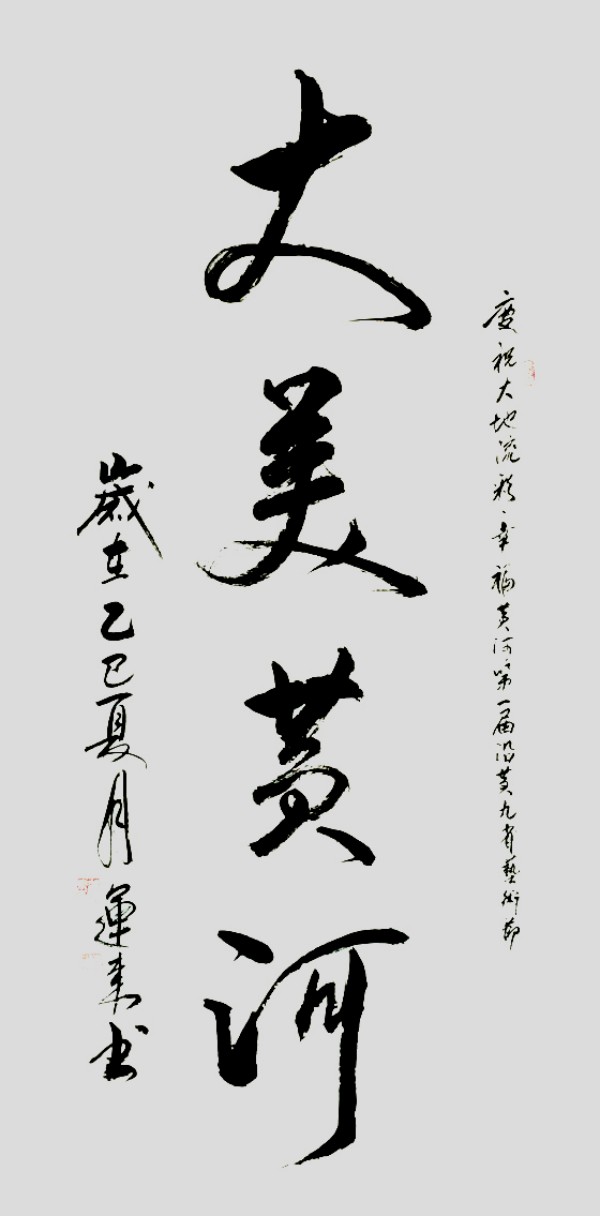 慶祝大地流彩·幸福黄河第一届沿黄九省藝術節
大美黄河
歲在乙巳夏月運来书